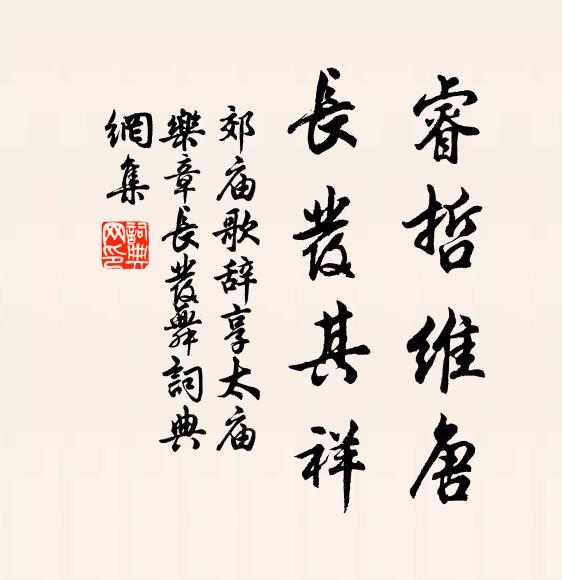 睿哲維唐
長發其祥
郊庙歌辞享太庙
樂章長發舞詞典
網集
詞典網印